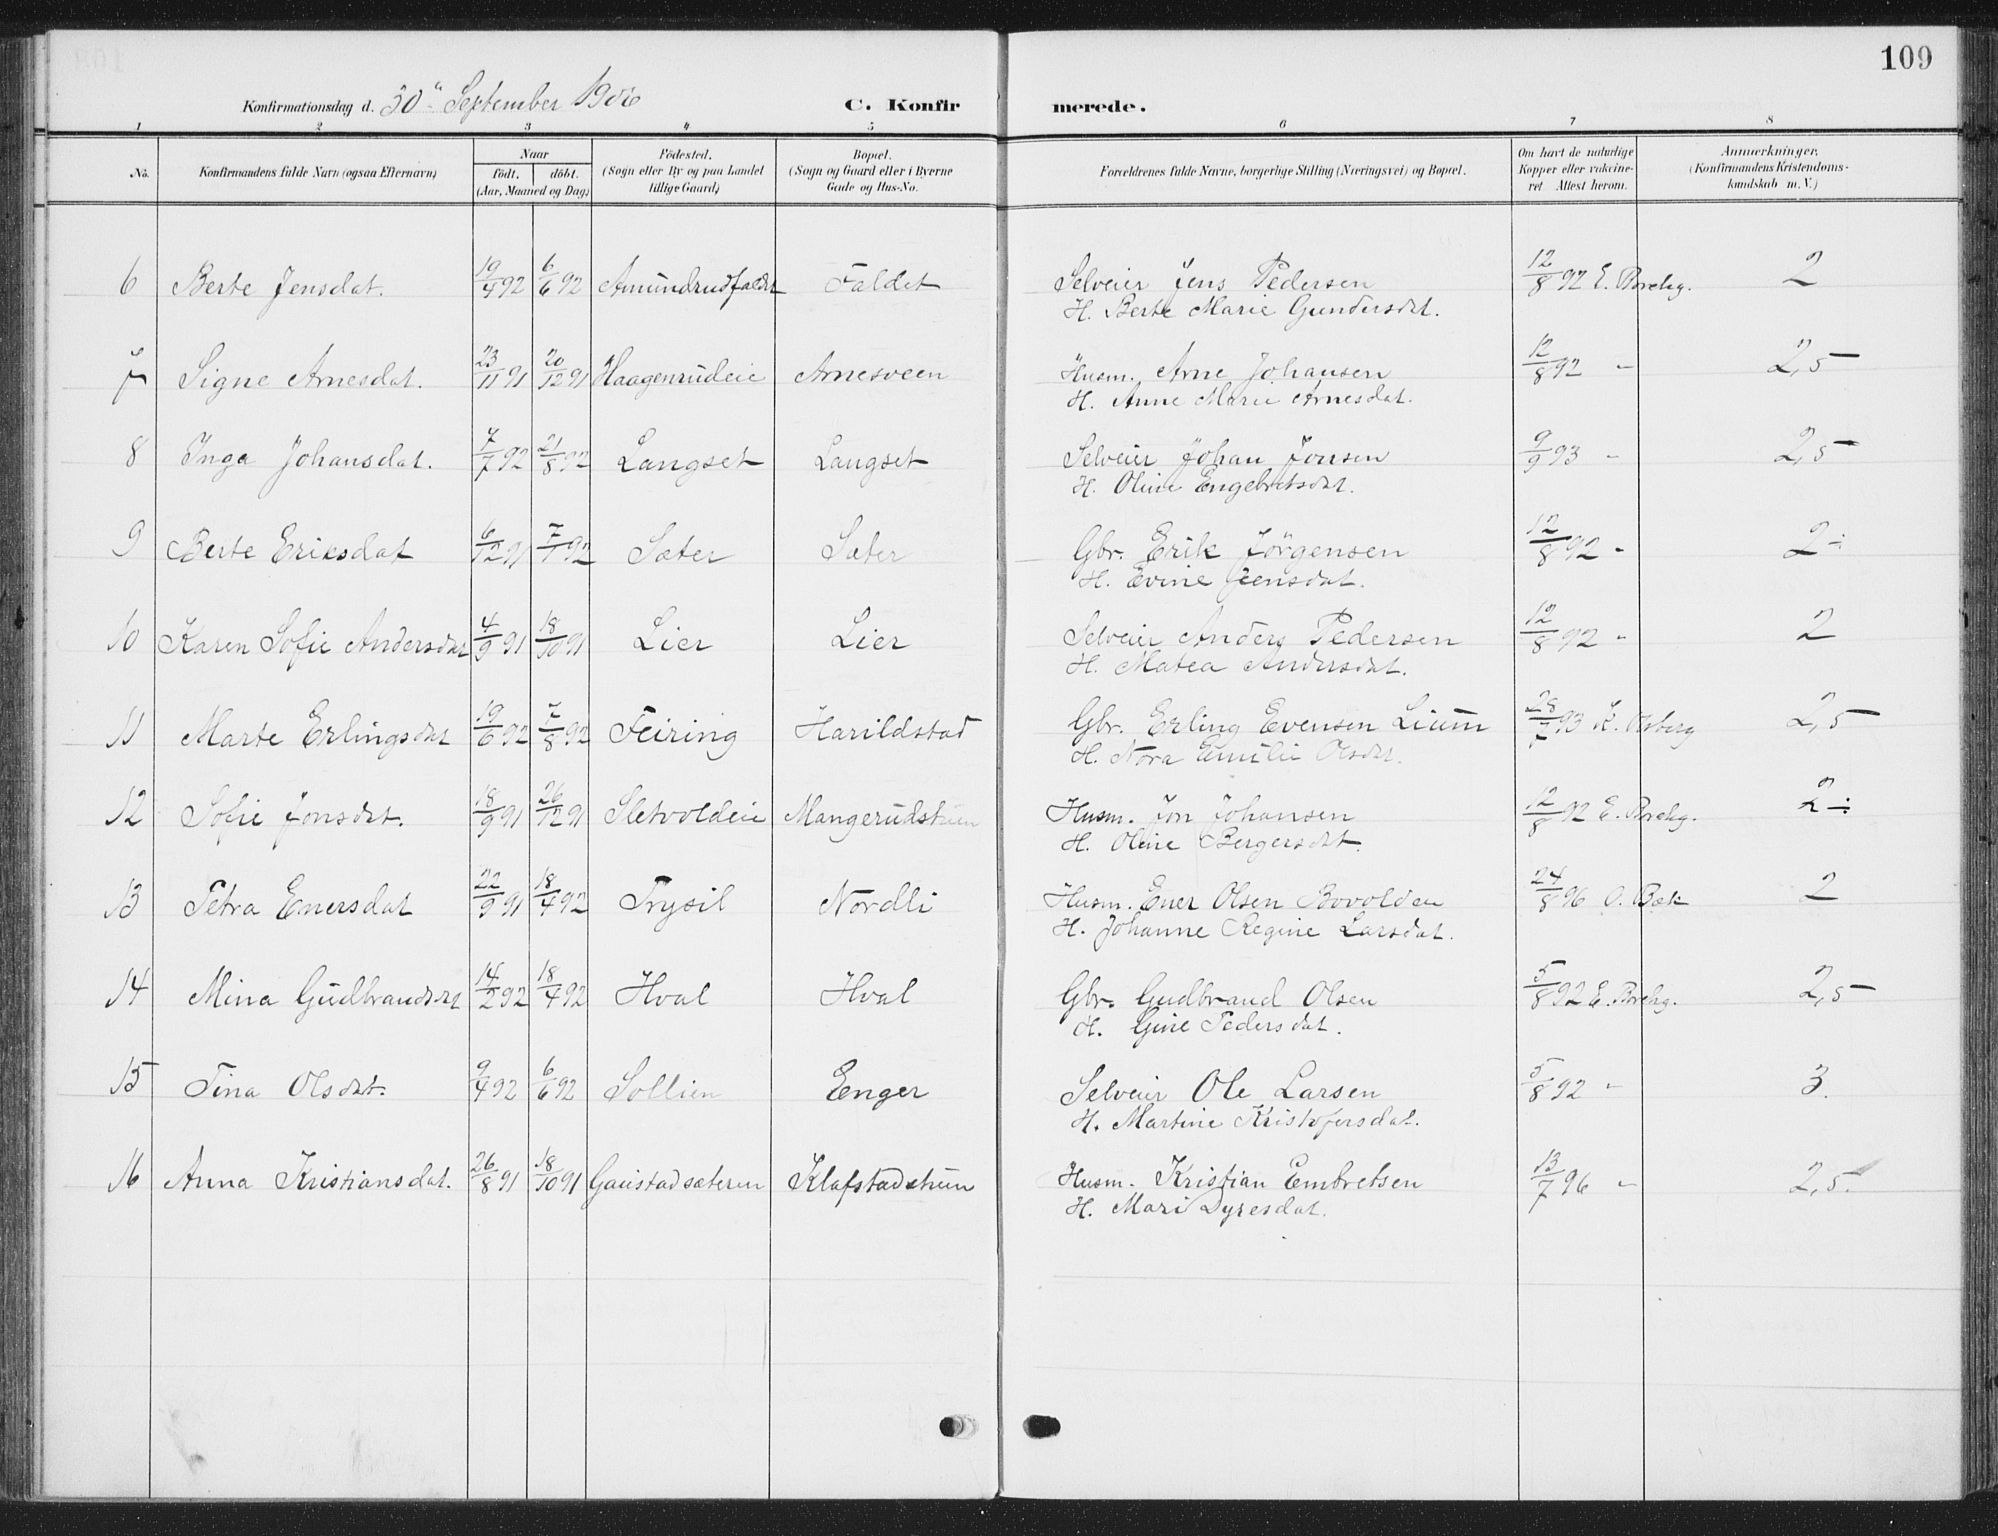 109
Konfirmationsdag d. 30" September 1906
C. Konfirmerede.
1 2 3 4 5 6 7 8
No. Konfirmandens fulde Navn (ogsaa Efternavn) Naar født. døbt. (Aar, Maaned og Dag) Fødested. (Sogn eller By og paa Landet tillige Gaard) Bopæl. (Sogn og Gaard eller i Byerne Gade og Hus-No. Forældrenes fulde Navne, borgerlige Stilling (Næringsvei) og Bopæl. Om havt de naturlige Kopper eller vakcineret Attest herom. Anmærkninger, (Konfirmandens Kristendomskundskab m. V.)
6 Berte Jensdat. 19/4 92 6/6 92 Amundrudfaldet Faldet Selveier Jens Pedersen 12/8 92 E. Borchg. 2
H. Berte Marie Gundersdat.
7 Signe Arnesdat. 23/11 91 20/12 91 Haagenrudeie Arnesveen Husm. Arne Johansen 12/8 92 " 2,5
H. Anne Marie Arnesdat.
8 Inga Johansdat. 7/7 92 21/8 92 Langset Langset Selveier Johan Jonsen 9/9 93 " 2,5
H. Oline Engebretsdat.
9 Berte Eriksdat 6/12 91 7/1 92 Sæter Sæter Gbr. Erik Jörgensen 12/8 92 " 2 ÷
H. Evine Jensdat.
10 Karen Sofie Andersdat 4/9 91 18/10 91 Lier Lier Selveier Anders Pedersen 12/8 92 " 2
H. Matea Andersdat.
11 Marte Erlingsdat 19/6 92 7/8 92 Feiring Harildstad Gbr. Erling Evensen Lium 28/7 93 K. Olsberg 2,5
H. Nora Emilie Olsdat.
12 Sofie Jonsdat. 18/9 91 26/12 91 Sletvoldeie Mangerudstuen Husm. Jon Johansen 12/8 92 E. Borchg. 2 ÷
H. Oline Bergersdat.
13 Petra Enersdat 22/9 91 18/4 92 Trysil Nordli Husm. Ener Olsen Bovolden 24/8 96 O. Bæk 2
H. Johanne Regine Larsdat.
14 Mina Gudbrandsdat 14/2 92 18/4 92 Hval Hval Gbr. Gudbrand Olsen 5/8 92 E. Borchg. 2,5
H. Gine Pedersdat.
15 Tina Olsdat. 9/4 92 6/6 92 Sollien Eenger Selveier Ole Larsen 5/8 92 " 3.
H. Martine Kristofersdat.
16 Anna Kristiansdat. 26/8 91 18/10 91 Gaustadsæteren Klafstadstuen Husm. Kristian Embretsen 13/7 96 " 2,5.
H. Mari Dyresdat.